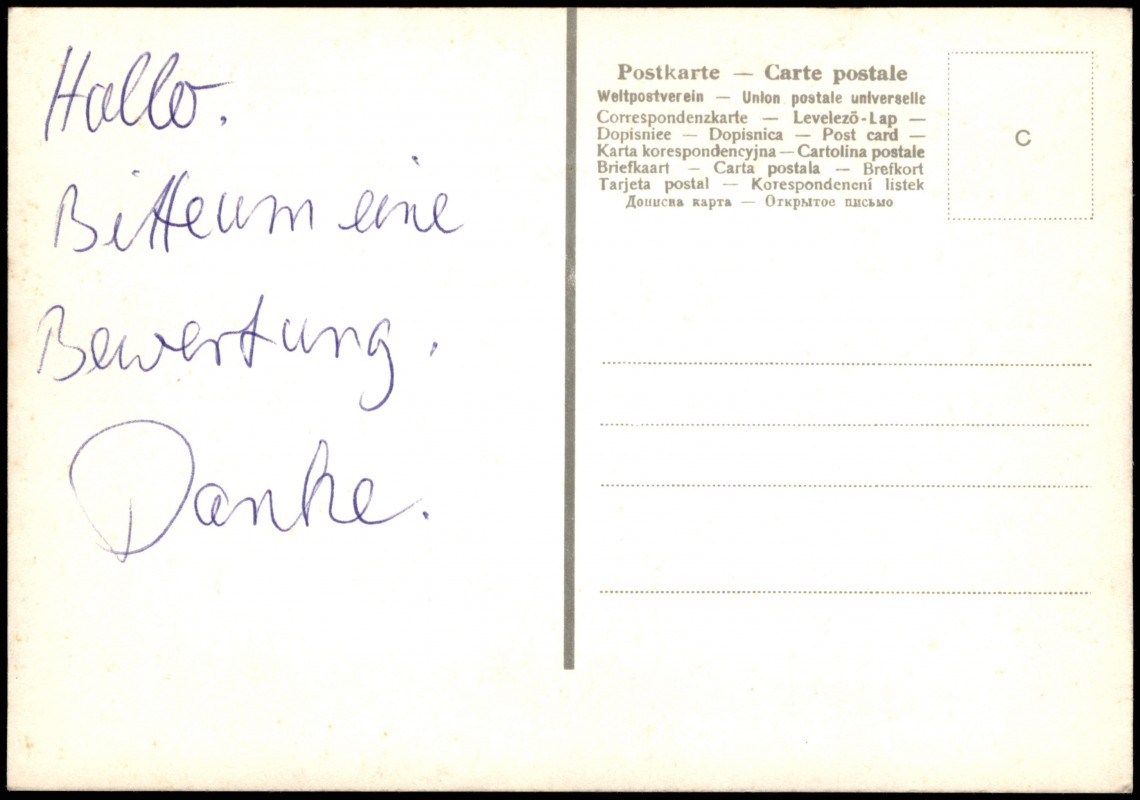 Hallo.
Bitte um eine
Bewertung.
Danke.
Postkarte — Carte postale
Weltpostverein — Union postale universelle
Correspondenzkarte — Levelezõ-Lap —
Dopisniee — Dopisnica — Post card —
Karta korespondencyjna — Cartolina postale
Briefkaart — Carta postala — Brefkort
Tarjeta postal — Korespondencní lístek
Дописва карта — Открытое письмо
C